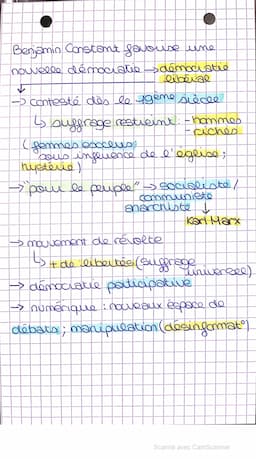 Benjamin Constant favorise une
nouvelle démocratie → démocratie
libérale
→ contesté dès le 19ème siècle
↳ suffrage restreint : - hommes
- riches
(femmes exclues
sous influence de l'église ;
hystérie)
→ "pour le peuple" → socialiste /
communiste
anarchiste
Karl Marx
→ mouvement de révolte
↳ + de libertés (suffrage
universel)
→ démocratie participative
→ numérique : nouveaux espace de
débats ; manipulation (désinformat°)
Scanné avec CamScanner